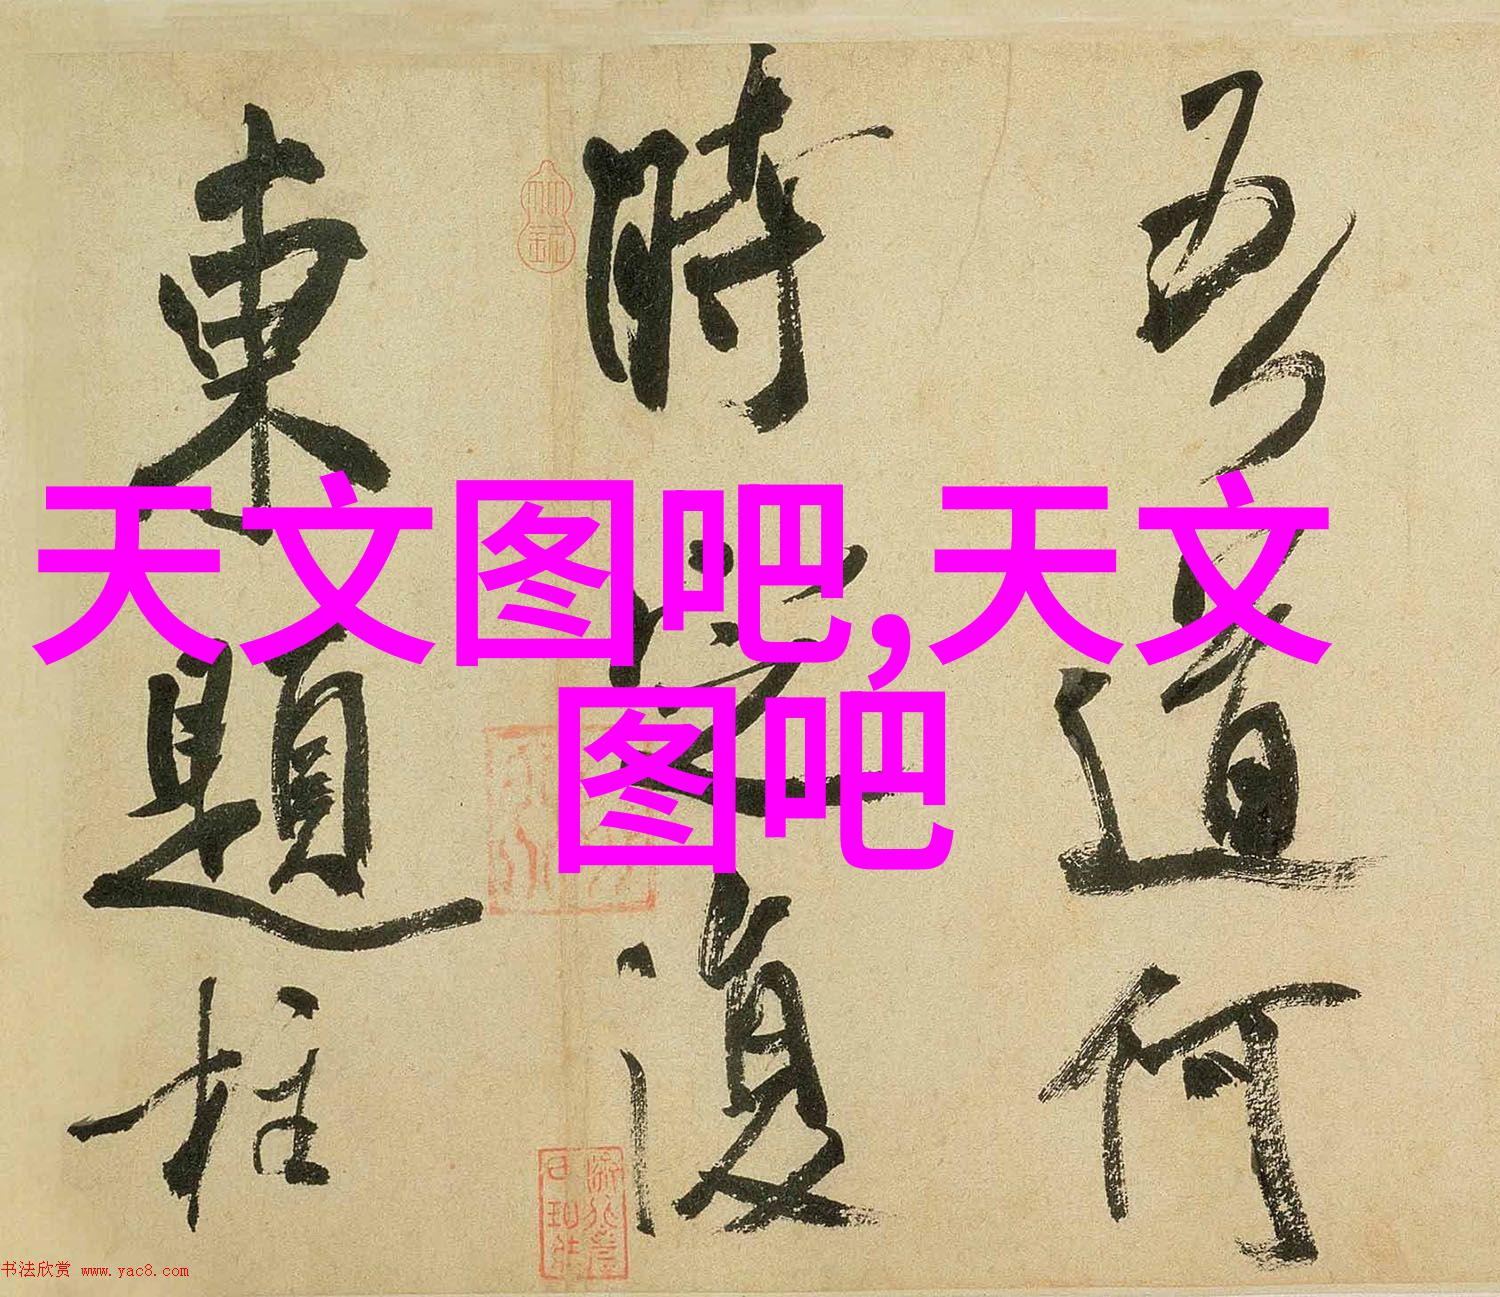 吾道何
時 復
東題柱
天文图吧,天文
图吧
书法欣赏 www.yac8.com